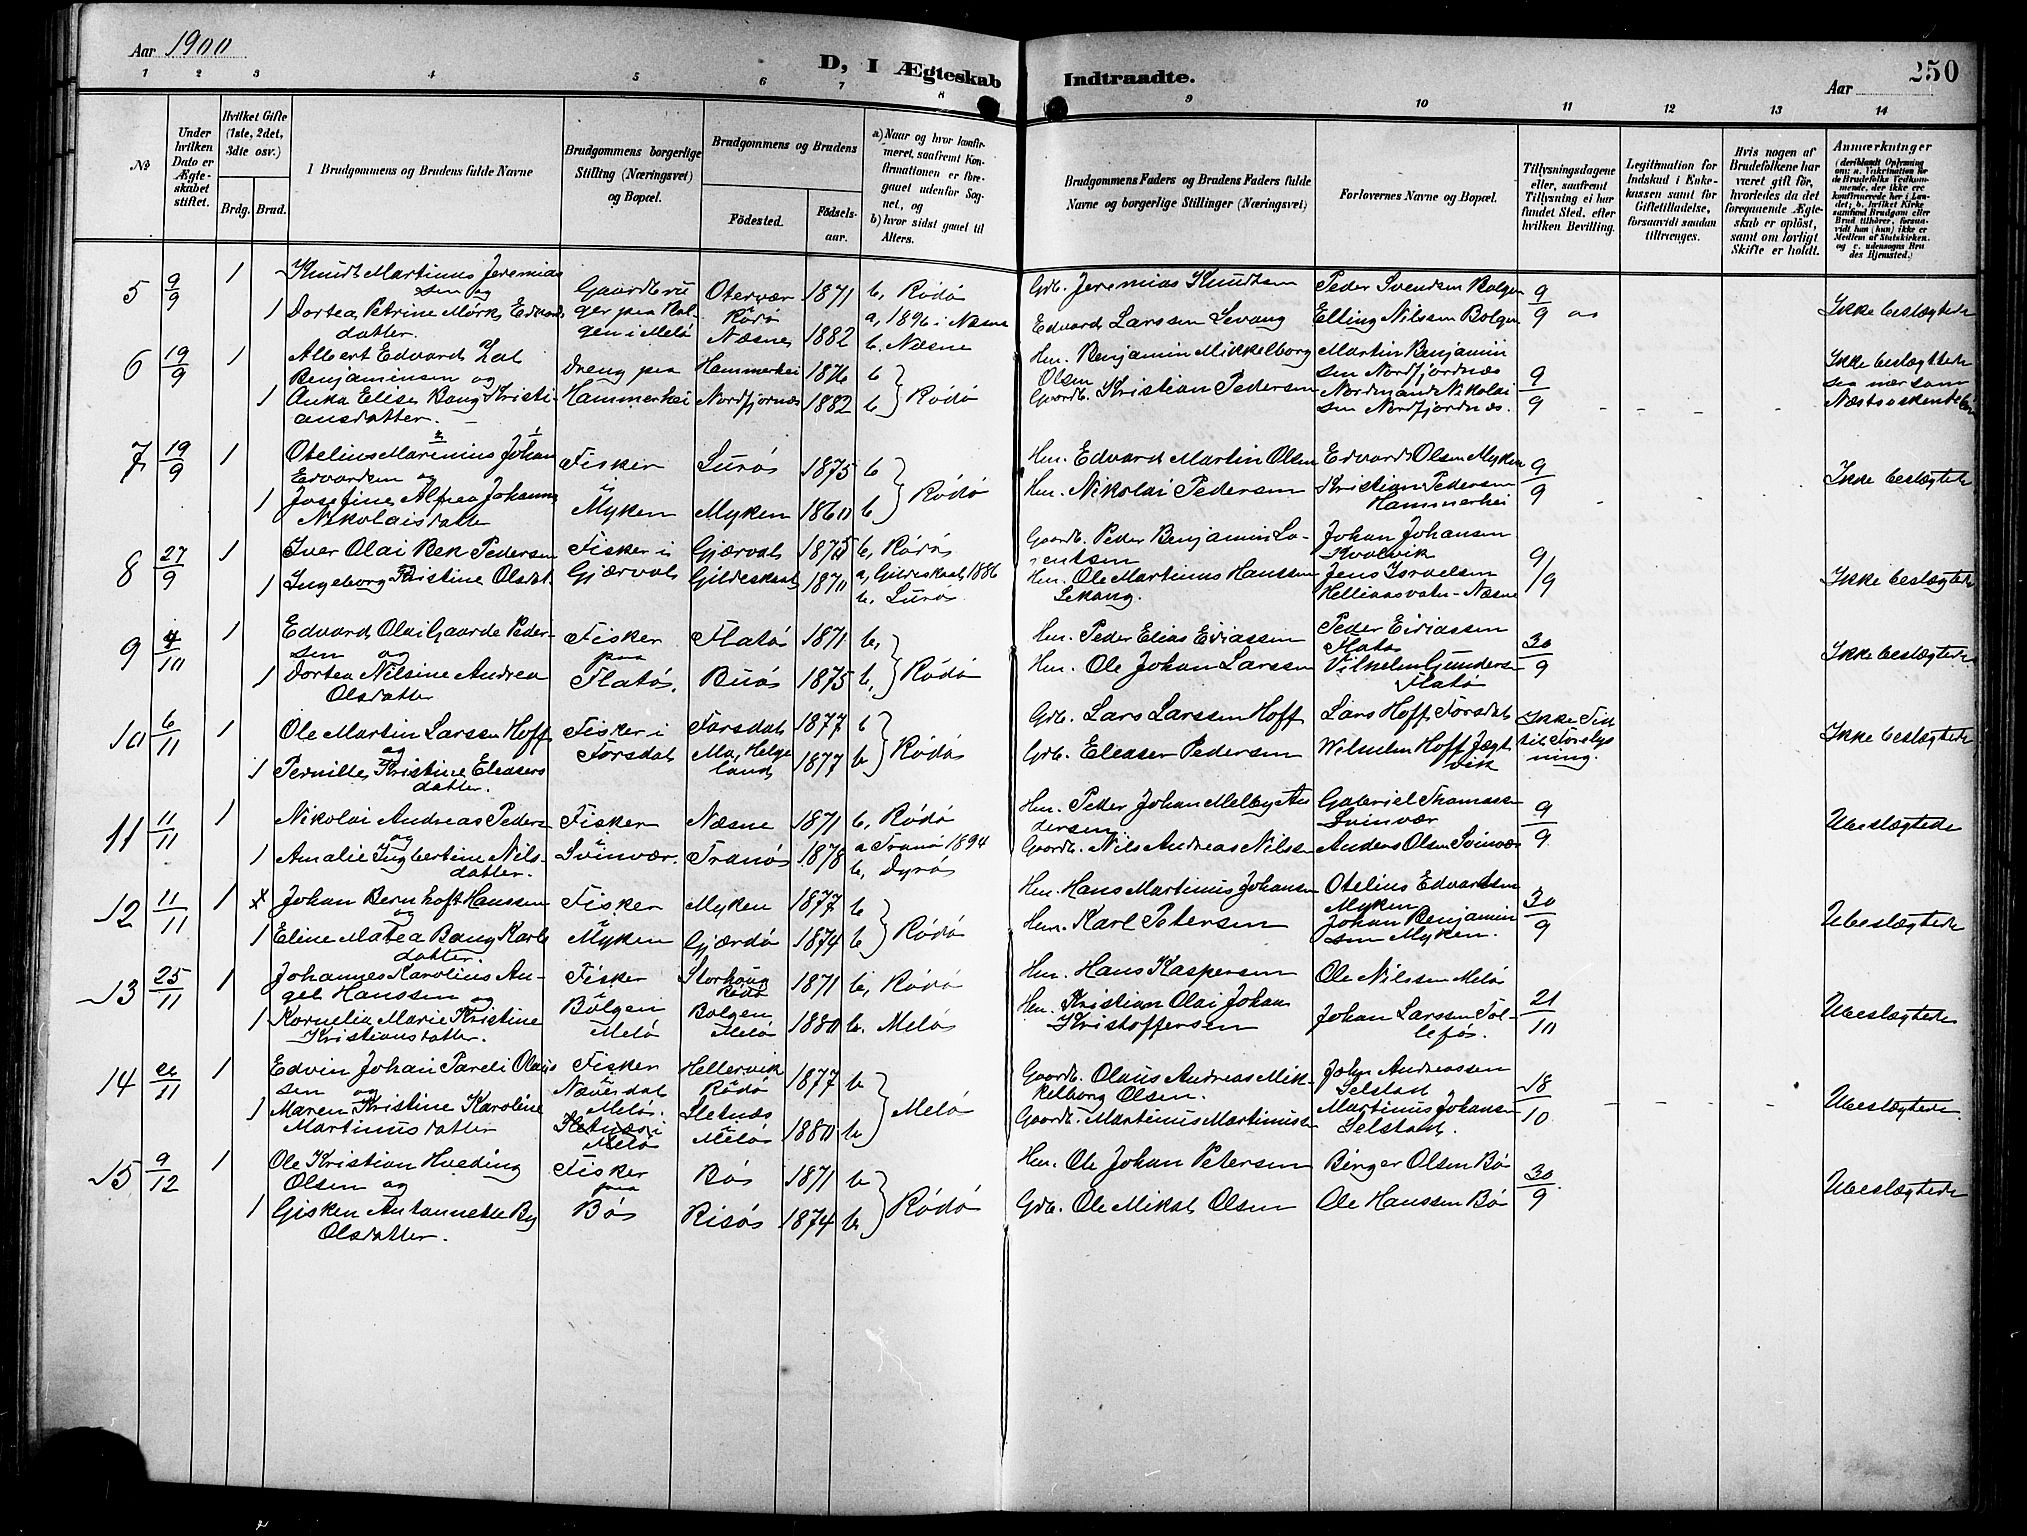 Aar 1900
D, I Ægteskab Indtraadte.
250
Aar
1 2 3 4 5 6 7 8 9 10 11 12 13 14
No
Under hvilken Dato er Ægteskabet stiftet.
Hvilket Gifte (1ste, 2det, 3die osv.)
Brdg. Brud.
I Brudgommens og Brudens fulde Navne
Brudgommens borgerlige Stilling (Næringsvei) og Bopæl.
Brudgommens og Brudens
Födested.
Födselsaar.
a) Naar og hvor konfirmeret, saafremt Konfirmationen er foregaaet udenfor Sognet, og
b) hvor sidst gaaet til Alters.
Brudgommens Faders og Brudens Faders fulde Navne og borgerlige Stillinger (Næringsvei)
Forlovernes Navne og Bopæl.
Tillysningsdagene eller, saafremt Tillysning ei har fundet Sted, efter hvilken Bevilling.
Legitimation for Indskud i Enkekassen samt for Giftetilladelse, forsaavidt saadan tiltrænges.
Hvis nogen af Brudefolkene har været gift för, hvorledes da det foregaaende Ægteskab er oplöst, samt om lovligt Skifte er holdt.
Anmærkninger
5 9/9 1 Knudt Martinus Jeremiassen og
Gaardbruger paa Bolgen i Melö
Otervær Rödö 1871 b, Rödö
Gdb. Jeremias Knudtsen
Peder Svendsen Bolgen
9/9
Ikke beslægtede
1 Dortea Petrine Mörk Edvardsdatter.
Næsne 1882 a, 1896 i Næsne b. Næsne
Edvard Larssen Levang
Elling Nilssen Bolgen
6 19/9 1 Albert Edvard Zal Benjaminsen og
Dreng paa Hammerhei
Hammerhei 1876 b
Hm. Benjamin Mikkelborg Olsen
Martin Benjaminsen Nordfjordnæs
9/9
Ikke beslægtede saa nær som Næstsöskendebörn
1 Anna Elise Bang Kristiansdatter.
Nordfjornæs 1882 b Rödö
Gaardb. Kristian Pedersen
Nordmand Nikolaisen Nordfjordnæs.
7 19/9 1 Otelius Marenius Johan Edvardsen og
Fisker i Myken
Luröi 1875 b
Hm. Edvard Martin Olsen
Edvard Olsen Myken
9/9
Ikke beslægtede
1 Josefine Alfrea Johanna Nikolaisdatter
Myken 1860 b Rödö
Hm. Nikolai Pedersen
Kristian Pedersen Hammerhei
8 27/9 1 Iver Olai Bek Pedersen
Fisker i Gjærval
Gjærval 1875 b, Rödö
Gaardb. Peder Benjamin Lorentsen
Johan Johansen Kvalvik
9/9
Ikke beslægtede
1 Ingeborg Kristine Olsdt.
Gildeskaal 1870 a, Gildeskaal 1886 b, Lurö
Hm. Ole Martinus Hanssen Lekang.
Jens Israelsen Helliaasvatn - Næsne
9 4/10 1 Edvard Olai Gaarde Pedersen og
Fisker paa Flatö.
Flatö 1871 b,
Hm. Peder Elias Eriassen
Peder Eriassen Flatö
30/9
Ikke beslægtede
1 Dortea Nilsine Andrea Olsdatter
Buö 1875 b, Rödö
Hm. Ole Johan Larssen
Vilhelm Gunders Flatö
10 6/11 1 Ole Martin Larssen Hoff og
Fisker i Forsdal
Forsdal 1877 b
Gdb. Lars Larssen Hoff
Lars Hoff Forsdal
Ikke Tid til Forelysning.
Ikke beslægtede
1 Pernille Kristine Eleasersdatter.
Mo, Helgeland 1877 b Rödö
Gdb. Eleaser Pedersen
Wilhelm Hoff Jægtvik
11 11/11 1 Nikolai Andreas Peders og
Fisker i Svinvær.
Næsne 1871 b, Rödö
Hm. Peder Johan Melby Andersen
Gabriel Thomassen Svinvær
9/9
Ubeslægtede
1 Amalie Ingbertine Nilsdatter.
Tranö 1878 a Tranö 1894 b, Dyrö
Gaardb. Nils Andreas Nilssen
Anders Olsen Svinvær
12 11/11 1 Johan Bernhoft Hanssen og
Fisker i Myken
Myken 1877 b
Hm. Hans Martinus Johansen
Otelius Edvardsen Myken
30/9
Ubeslægtede
1 Eline Matea Bang Karlsdatter.
Gjærdö 1874 b Rödö
Hm. Karl Petersen
Johan Benjaminsen Myken.
13 25/11 1 Johannes Karolius Angel Hanssen og
Fisker i Bolgen Melö
Storhaug Rödö 1871 b, Rödö
Hm. Hans Kaspersen
Ole Nilssen Melö
21/10
Ubeslægtede
1 Kornelia Marie Kristine Kristiansdatter.
Bolgen Melö 1880 b. Melö
Hm. Kristian Olai Johan Kristoffersen
Johan Larssen Tollefös.
14 26/11 1 Edvin Johan Pareli Olaussen og
Fisker Næverdal Melö.
Hellervik Rödö 1877 b
Gaardb. Olaus Andreas Mikkelborg Olsen.
John Andreassen Selstad
18/10
Ubeslægtede.
1 Maren Kristine Karoline Martinusdatter
Melö
Sletnæs Melö 1880 b Melö
Gaardb. Martinus Martinussen
Martinus Johansen Selstad.
15 9/12 1 Ole Kristian Hveding Olsen og
Fisker paa Bö
Bö 1871 b
Hm. Ole Johan Petersen
Birger Olsen Bö
30/9
Ubeslægtede
1 Gisken Antonnette By Olsdatter.
Risö 1874 b Rödö
Gdb. Ole Mikal Olsen
Ole Hanssen Bö